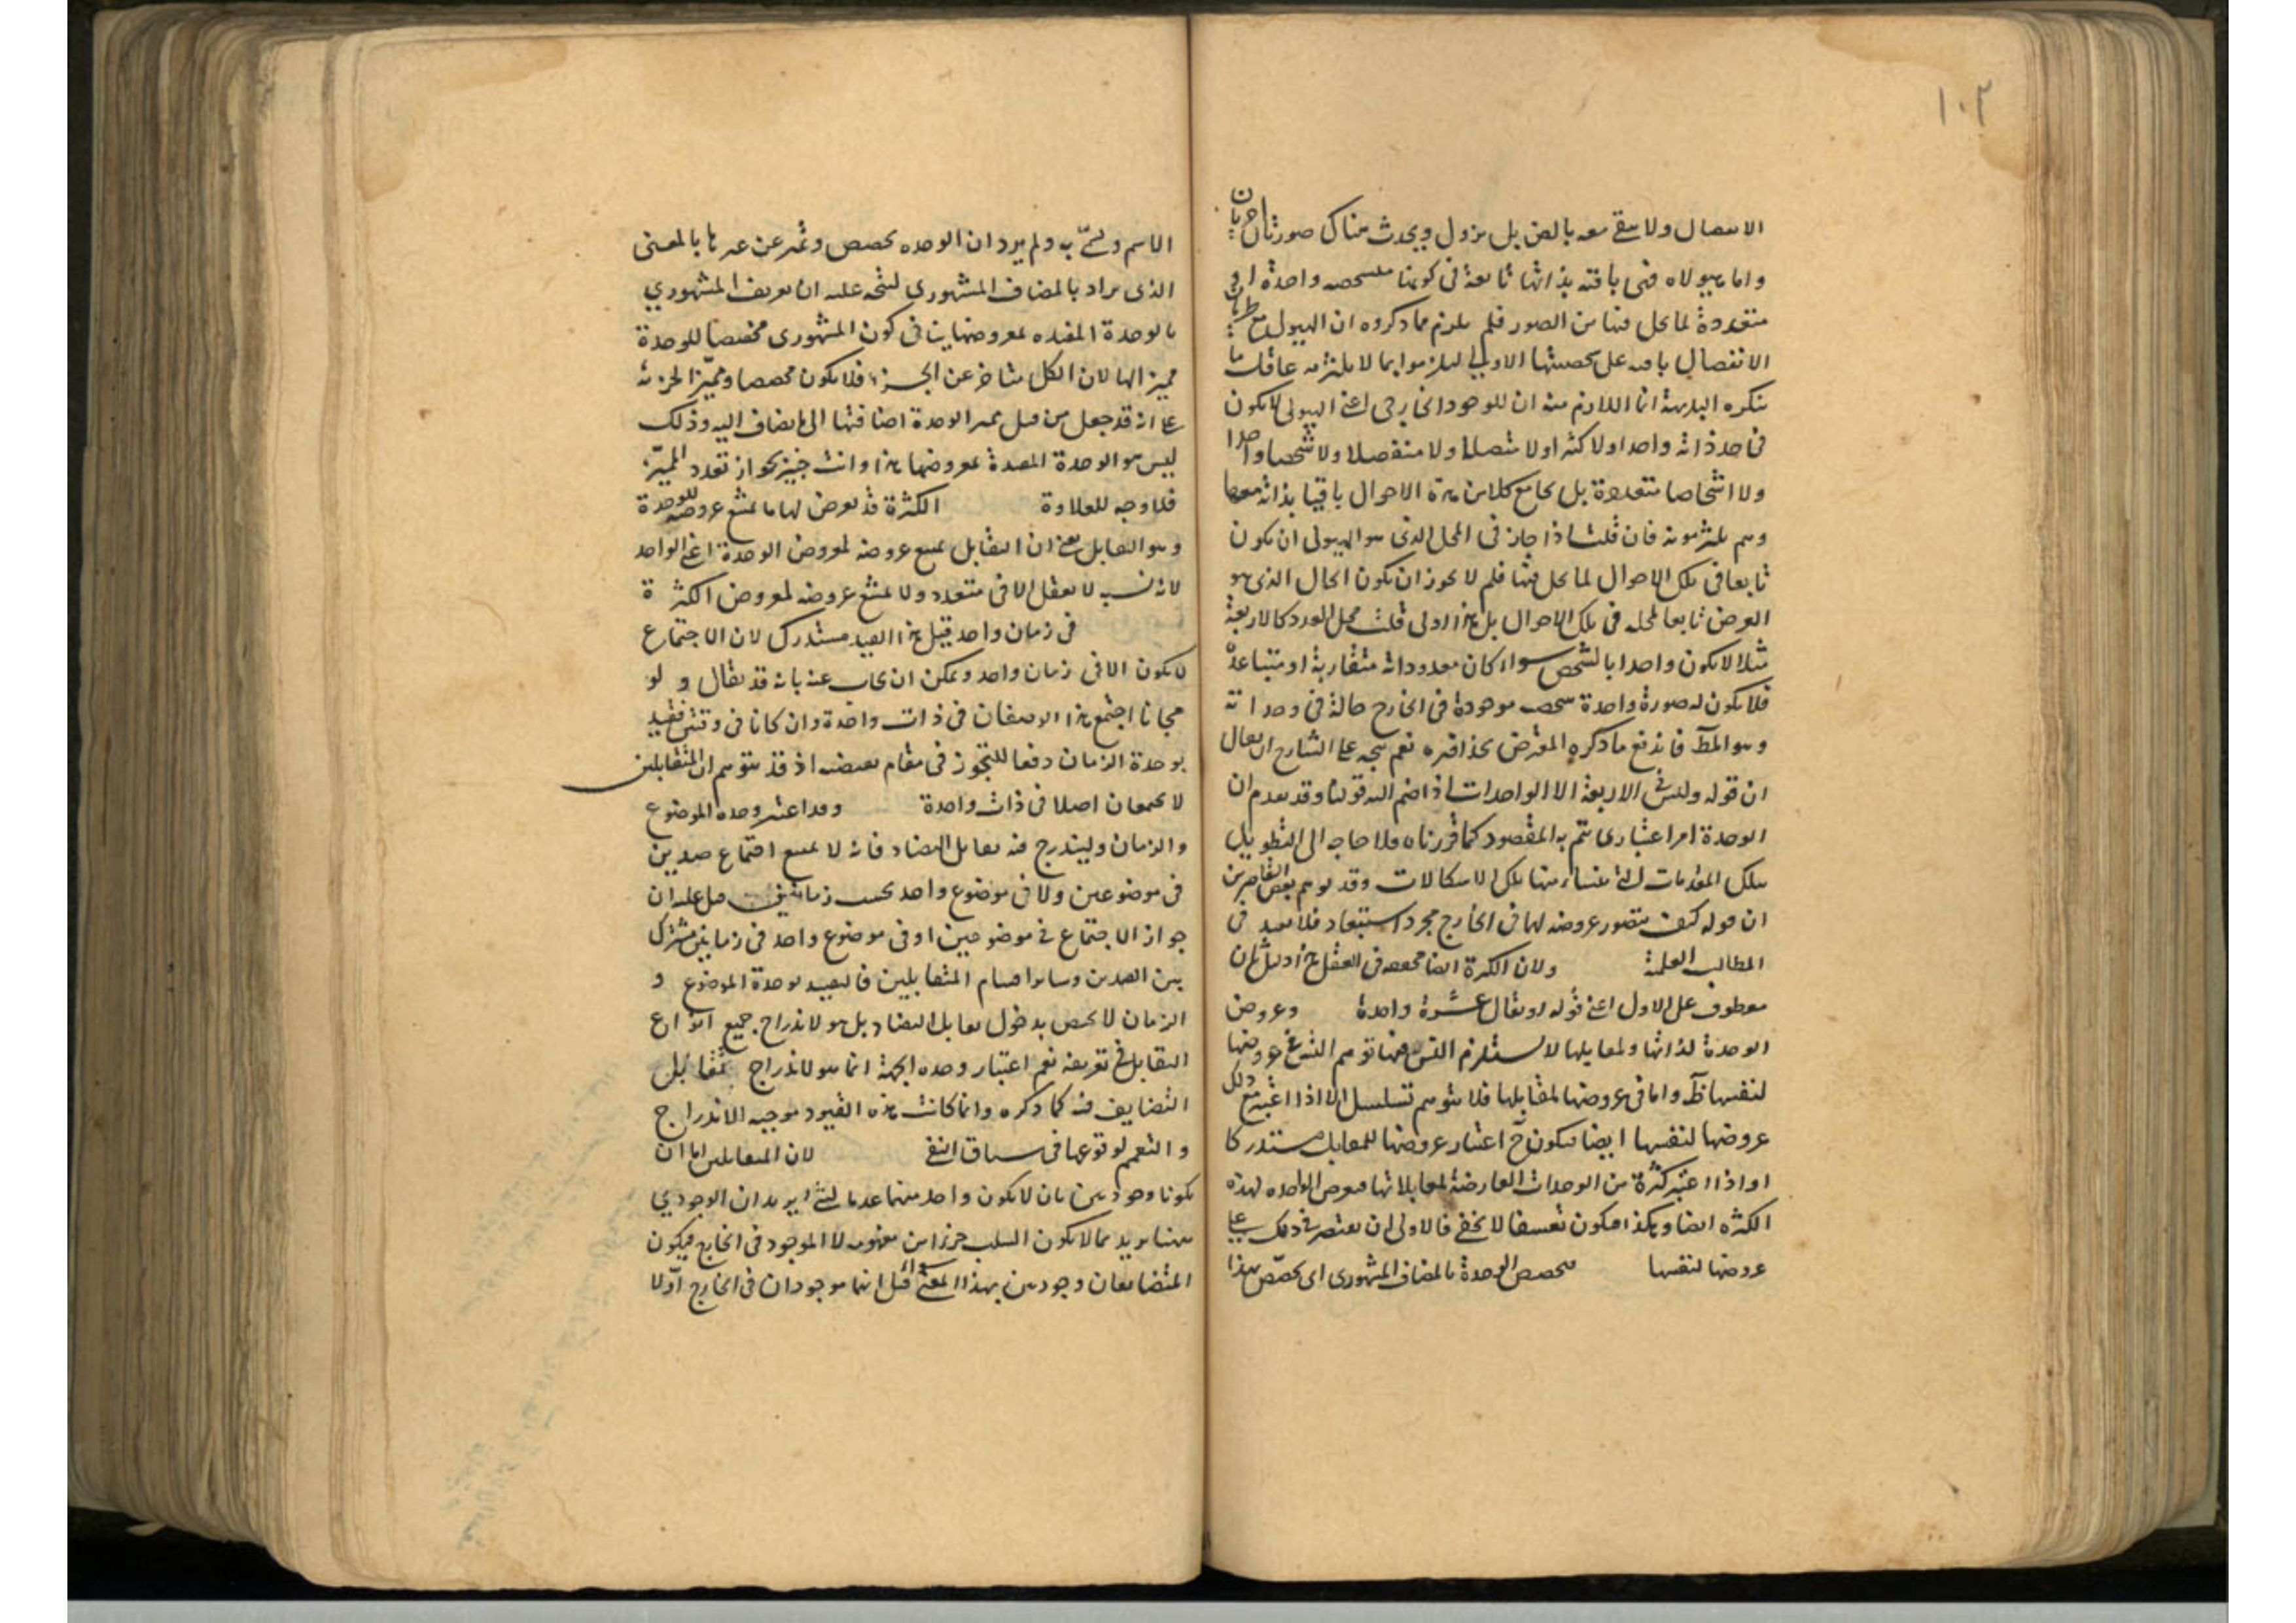 ١٠٣
الاتصال ولا يبقى معه بالضرورة بل يزول ويحدث هناك صورتان اخريان
واما هيولاه فهى باقية بذاتها تابعة فى كونها متشخصة واحدة او
متعددة لما يحل فيها من الصور فلم يلزم مما ذكروه ان الهيولى مع طريان
الانفصال باقية على شخصيتها الاولى ليلزموا بما لا يلتزمه عاقل
ينكره البديهة انما اللازم منه ان للموجود الخارجى اعنى الهيولى لا يكون
فى حد ذاته واحدا ولا كثيرا ولا متصلا ولا منفصلا ولا شخصا واحدا
ولا اشخاصا متعددة بل يجامع كلا من هذه الاحوال باقيا بذاته معها
وهم يلتزمونه فان قلت اذا جاز فى المحل الذى هو الهيولى ان يكون
تابعا فى تلك الاحوال لما يحل فيها فلم لا يجوز ان يكون الحال الذى هو
العرض تابعا لمحله فى تلك الاحوال بل هذا اولى قلت محل العدد كالاربعة
مثلا لا يكون واحدا بالشخص سواء كان معدوداته متقاربة او متباعدة
فلا يكون له صورة واحدة شخصية موجودة فى الخارج حالة فى وحداته
وهو المط فاندفع ما ذكره المعترض بحذافيره نعم يتجه على الشارح ان يقال
ان قوله وليس فى الاربعة الا الواحدات اذا ضم اليه قولنا وقد تقدم ان
الوحدة امر اعتبارى يتم به المقصود كما قررناه فلا حاجة الى التطويل
بتلك المقدمات التى ينشاء منها تلك الاشكالات وقد توهم بعض القاصرين
ان قوله كيف يتصور عروضه لها فى الخارج مجرد استبعاد فلا يفيد فى
المطالب العلمية ولان الكثرة ايضا مجتمعة فى العقل هذا دليل ثان
معطوف على الاول اعنى قوله او يقال عشرة واحدة وعروض
الوحدة لذاتها ولمقابلها لا يستلزم التس فيها توهم التس فى عروضها
لنفسها ظ واما فى عروضها لمقابلها فلا يتوهم تسلسل الا اذا اعتبر مع ذلك
عروضها لنفسها ايضا فيكون ح اعتبار عروضها للمقابل مستدركا
او اذا اعتبر كثرة من الوحدات العارضة لمقابلاتها فعروض الواحده لهذه
الكثره ايضا وهكذا فيكون تعسفا لا يخفى فالاولى ان يقتصر فى ذلك على
عروضها لنفسها تخصص الوحدة بالمضاف المشهورى اى تخصّص بهذا
الاسم ولم يرد ان الوحده تخصص وتميز عن غيرها بالمعنى
الذى يراد بالمضاف المشهورى ليتجه عليه ان تعريف المشهوري
بالوحدة المقيده لمعروضها ينافى كون المشهورى مخصصا للوحدة
مميزا لها لان الكل متاخر عن الجزء فلا يكون مخصصا ومميّزا لجزئه
على انه قد جعل من قبل مميز الوحدة اضافتها الى ما يضاف اليه وذلك
ليس هو الوحدة المقيدة بمعروضها هذا وانت خبير بجواز تعدد المميّز
فلا وجه للعلاوة الكثرة قد يعرض لها ما يمتنع عروضه للوحدة
وهو التقابل يعنى ان التقابل يمتنع عروضه لمعروض الوحدة اعنى الواحد
لانه نسبة لا يعقل الا فى متعدد ولا يمتنع عروضه لمعروض الكثرة
فى زمان واحد قيل هذا القيد مستدرك لان الاجتماع
لا يكون الا فى زمان واحد ويمكن ان يجاب عنه بانه قد يقال ولو
مجازا اجتمع هذا الوصفان فى ذات واحدة وان كانا فى وقتين فقيد
بوحدة الزمان دفعا للتجوز فى مقام تعريفه اذ قد يتوهم ان المتقابلين
لا يجتمعان اصلا فى ذات واحدة وقد اعتبر وحده الموضوع
والزمان وليندرج فيه تقابل التضاد فانه لا يمتنع اجتماع ضدين
فى موضوعين ولا فى موضوع واحد بحسب زمانين قيل عليه ان
جواز الاجتماع فى موضوعين او فى موضوع واحد فى زمانين مشترك
بين الضدين وسائر اقسام المتقابلين فالتقييد بوحدة الموضوع و
الزمان لا يختص بدخول تقابل التضاد بل هو لاندراج جميع انواع
التقابل فى تعريفه نعم اعتبار وحده الجهة انما هو لاندراج تقابل
التضايف فيه كما ذكره وانما كانت هذه القيود موجبه الاندراج
والتعميم لوقوعها فى سياق النفى لان المتقابلين اما ان
يكونا وجوديين بان لا يكون واحد منهما عدما لشئ يريد ان الوجودي
ههنا يريد بما لا يكون السلب جزءا من مفهومه لا الموجود فى الخارج فيكون
المتضايفان وجوديين بهذا المعنى سواء قيل انهما موجودان فى الخارج اولا